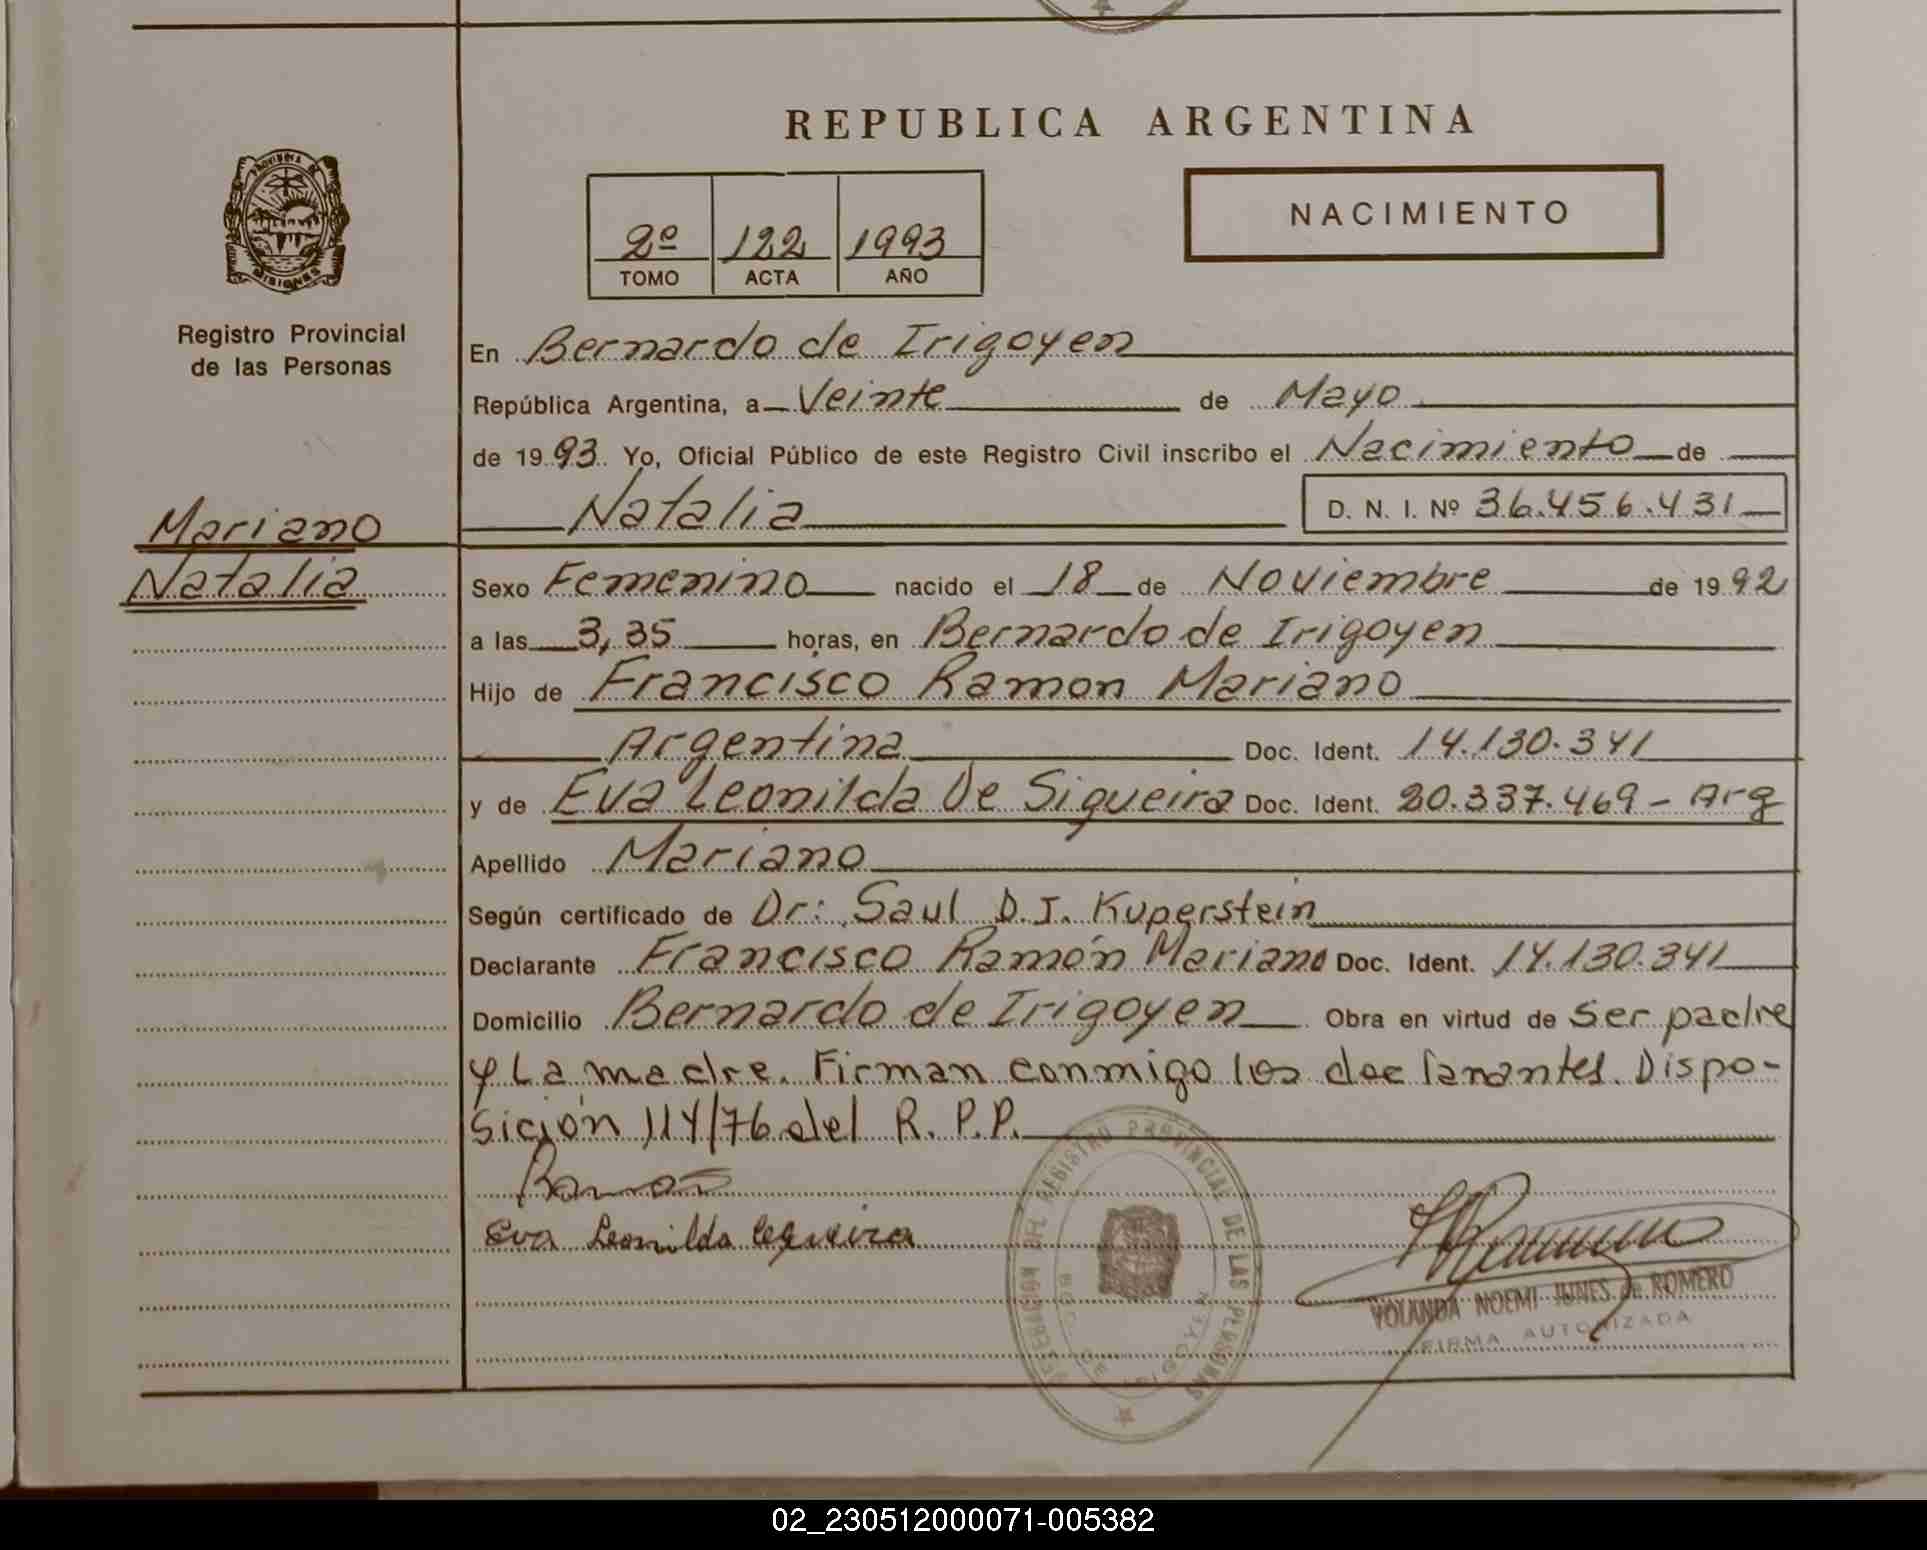 REPUBLICA ARGENTINA
PROVINCIA DE
MISIONES
Registro Provincial
de las Personas
2º 122 1993
TOMO ACTA AÑO
NACIMIENTO
En Bernardo de Irigoyen
República Argentina, a Veinte de Mayo
de 1993. Yo, Oficial Público de este Registro Civil inscribo el Nacimiento de
Natalia D. N. I. Nº 36.456.431
Mariano
Natalia
Sexo Femenino nacido el 18 de Noviembre de 1992
a las 3,35 horas, en Bernardo de Irigoyen
Hijo de Francisco Ramon Mariano
Argentina Doc. Ident. 14.130.341
y de Eva Leonilda De Siqueira Doc. Ident. 20.337.469 - Arg
Apellido Mariano
Según certificado de Dr: Saul D.J. Kuperstein
Declarante Francisco Ramón Mariano Doc. Ident. 14.130.341
Domicilio Bernardo de Irigoyen Obra en virtud de Ser padre
y La madre. Firman conmigo los declarantes. Dispo-
sición 114/76 del R. P.P.
Eva Leonilda
DEL REGISTRO PROVINCIAL DE LAS PERSONAS
DE IRIGOYEN
YOLANDA NOEMI JUNES de ROMERO
FIRMA AUTORIZADA
02_230512000071-005382